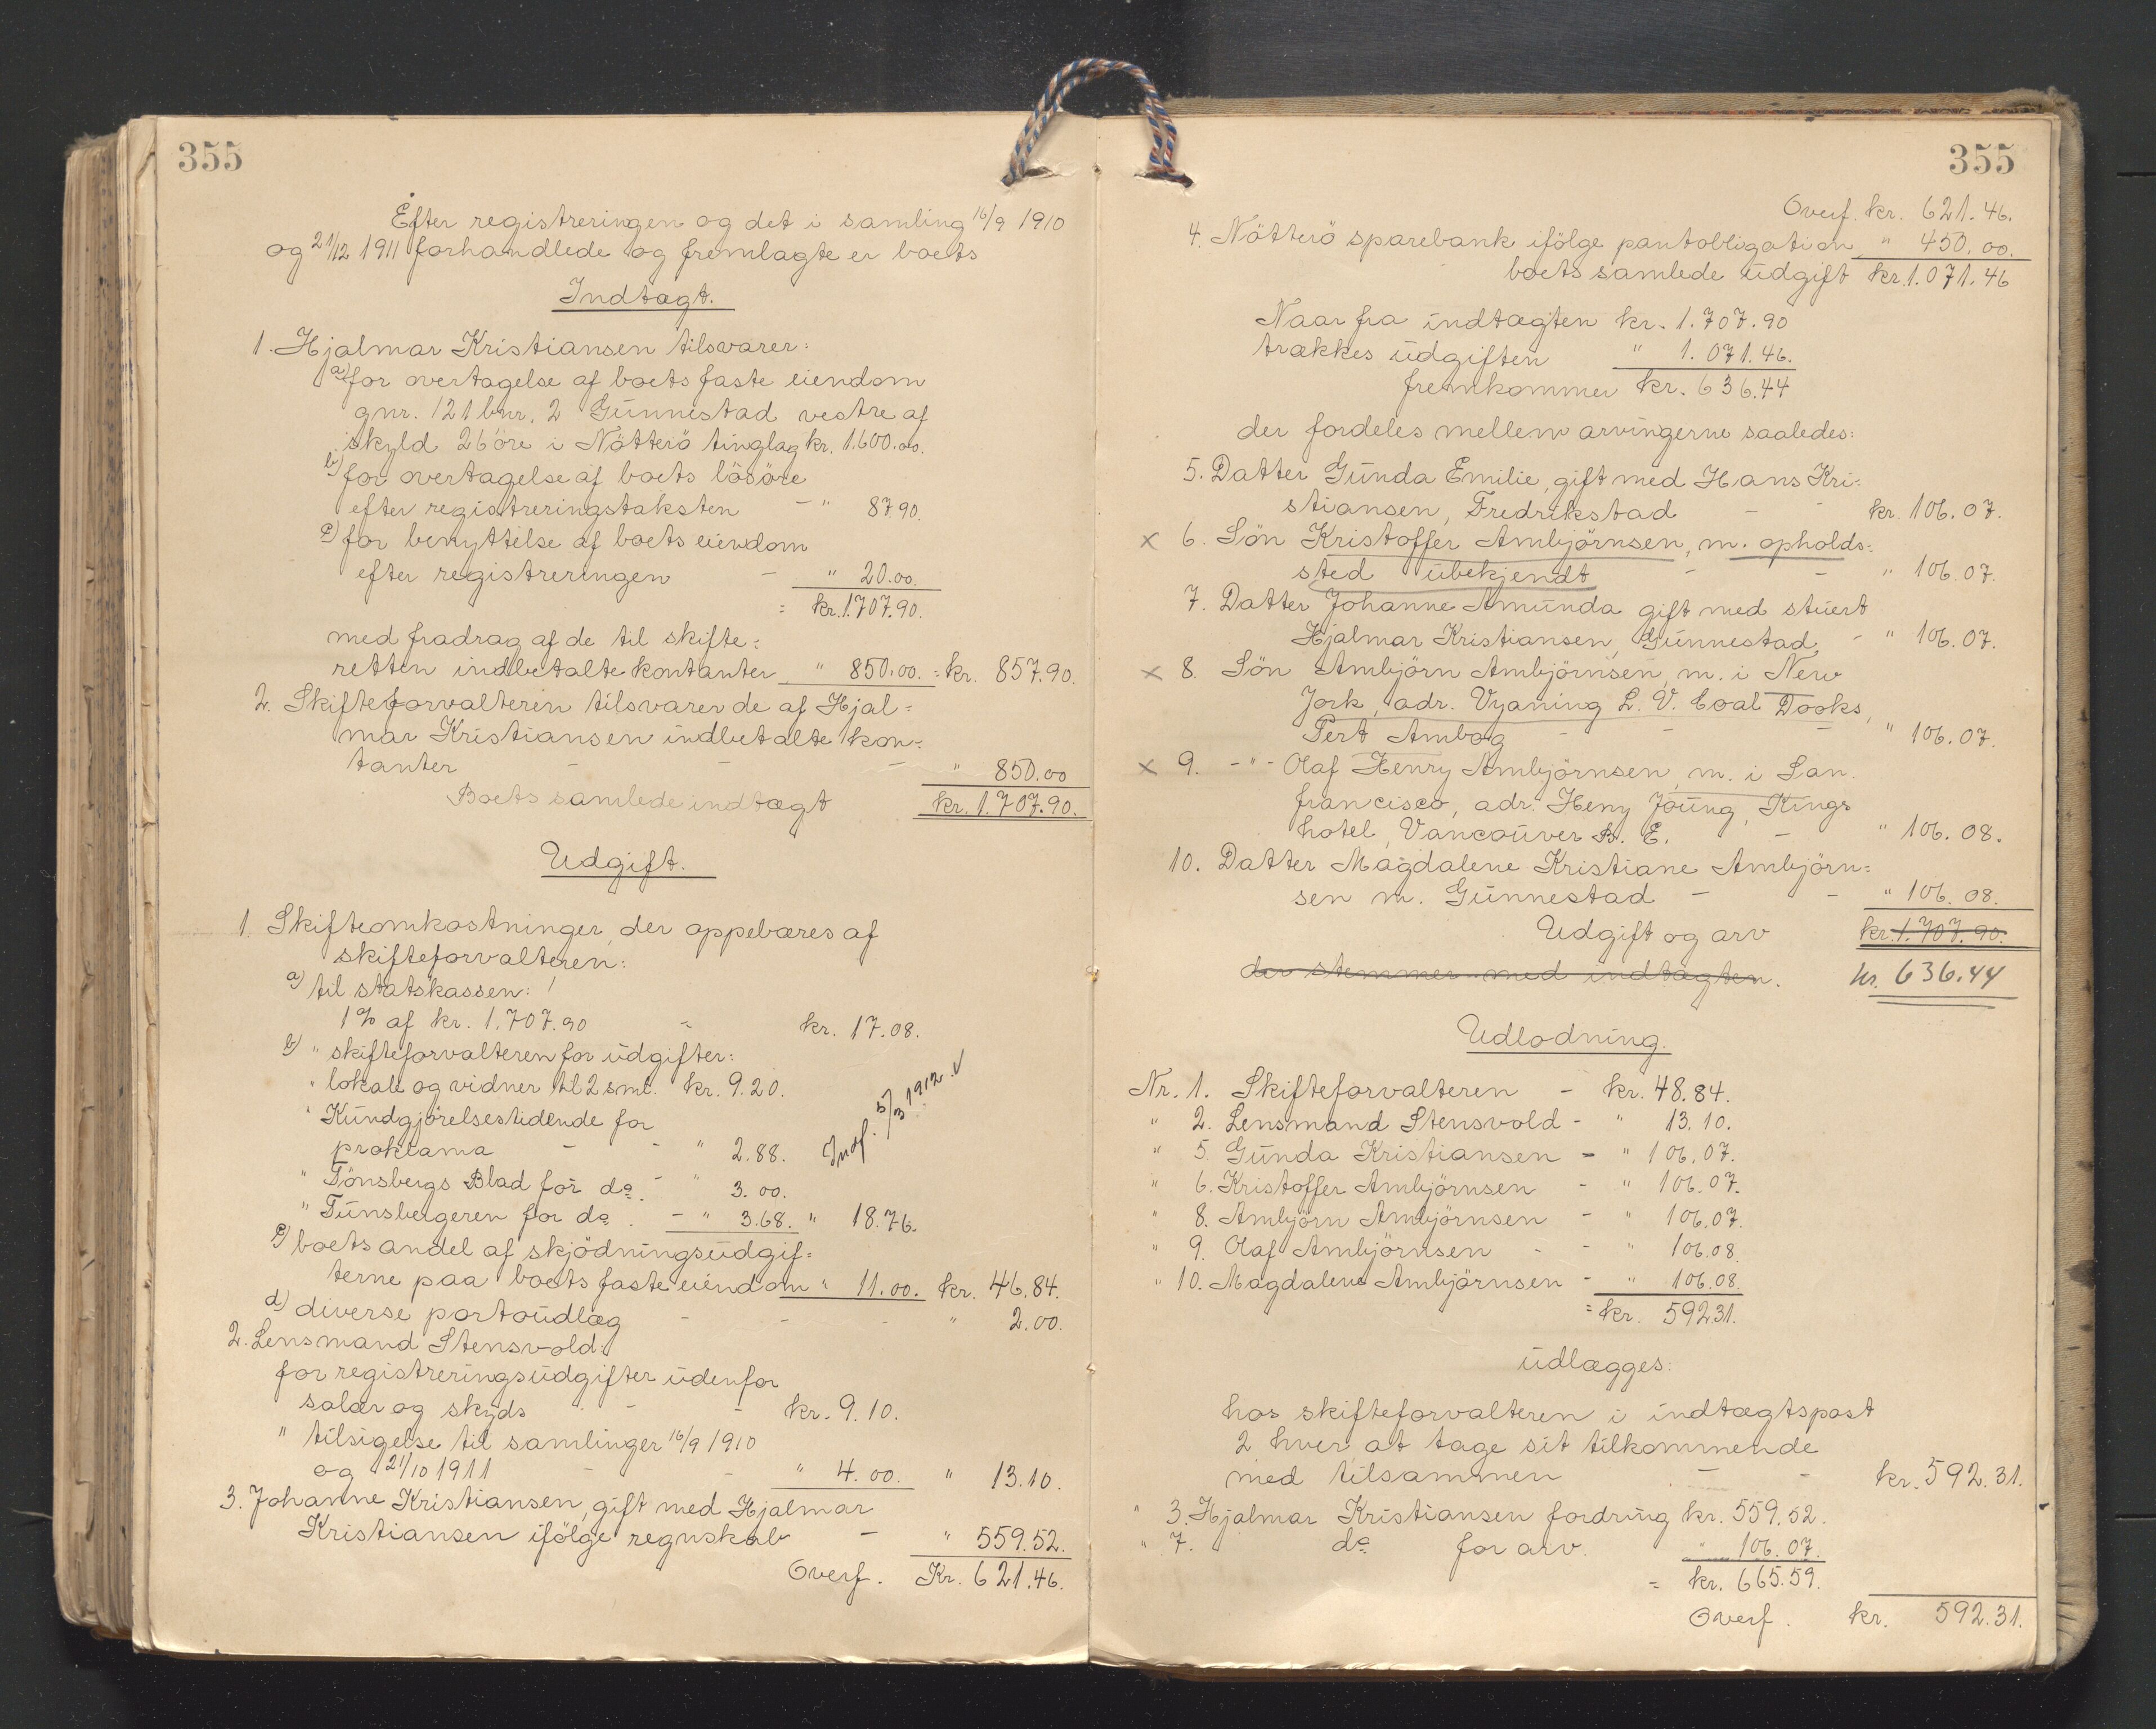 355
Efter registreringen og det i samling 16/9 1910
og 21/12 1911 forhandlede og fremlagte er boets
Indtægt.
1. Hjalmar Kristiansen tilsvarer:
a) for overtagelse af boets faste eiendom
gnr. 121 bnr. 2 Gunnestad vestre af
skyld 26 öre i Nötterö tinglag kr. 1.600.00.
b) for overtagelse af boets lösöre
efter registreringstaksten - " 87.90.
c) for benyttelse af boets eiendom
efter registreringen - " 20.00.
= kr. 1.707.90.
med fradrag af de til skifte=
retten indbetalte kontanter " 850.00. = kr. 857.90.
2. Skifteforvalteren tilsvarer de af Hjal=
mar Kristiansen indbetalte kon=
tanter - - - " 850.00
Boets samlede indtægt kr. 1.707.90.
Udgift.
1. Skifteomkostninger, der oppebæres af
skifteforvalteren:
a) til statskassen:
1% af kr. 1.707.90 - kr. 17.08.
b) " skifteforvalteren for udgifter:
" lokale og vidner til 2 sml. kr. 9.20.
" Kundgjörelsestidende for
proklama - - " 2.88.
Indf. 5/3 1912. √
" Tönsbergs Blad for do. - " 3.00.
" Tunsbergeren for do. - " 3.68. " 18.76.
c) boets andel af skjödningsudgif=
terne paa boets faste eiendom " 11.00. kr. 46.84.
d) diverse portoudlæg - - - " 2.00.
2. Lensmand Stensvold:
for registreringsudgifter udenfor
salær og skyds - - kr. 9.10.
" tilsigelse til samlinger 16/9 1910
og 21/10 1911 - - " 4.00. " 13.10.
3. Johanne Kristiansen, gift med Hjalmar
Kristiansen ifölge regnskab - " 559.52.
Overf. Kr. 621.46.
355
Overf. kr. 621.46.
4. Nötterö sparebank ifölge pantobligation " 450.00.
boets samlede udgift kr. 1.071.46
Naar fra indtægten kr. 1.707.90
trækkes udgiften " 1.071.46.
fremkommer kr. 636.44
der fordeles mellem arvingerne saaledes:
5. Datter Gunda Emilie, gift med Hans Kri=
stiansen, Fredrikstad - - kr. 106.07.
x 6. Sön Kristoffer Ambjörnsen, m. opholds=
sted ubekjendt - - " 106.07.
7. Datter Johanne Amunda gift med stuert
Hjalmar Kristiansen, Gunnestad - " 106.07.
x 8. Sön Ambjörn Ambjörnsen, m. i New
Jork, adr. Vyaning L. V. Coal Dooks,
Pert Ambog - - - " 106.07.
x 9. -"- Olaf Henry Ambjörnsen, m. i San
francisco, adr. Heny Joung, Kings
hotel, Vancouver B. E. - " 106.08.
10. Datter Magdalene Kristiane Ambjörn=
sen m. Gunnestad - - " 106.08.
Udgift og arv kr. 1.707.90.
der stemmer med indtægten. kr. 636.44
Udlodning.
Nr. 1. Skifteforvalteren - kr. 48.84.
" 2. Lensmand Stensvold - " 13.10.
" 5. Gunda Kristiansen - " 106.07.
" 6. Kristoffer Ambjörnsen - " 106.07.
" 8. Ambjörn Ambjörnsen - " 106.07.
" 9. Olaf Ambjörnsen - - " 106.08.
" 10. Magdalene Ambjörnsen - " 106.08.
= kr. 592.31.
udlægges:
hos skifteforvalteren i indtægtspost
2 hver at tage sit tilkommende
med tilsammen - - kr. 592.31.
" 3. Hjalmar Kristiansen fordring kr. 559.52.
" 7. do for arv. " 106.07.
= kr. 665.59.
Overf. kr. 592.31.